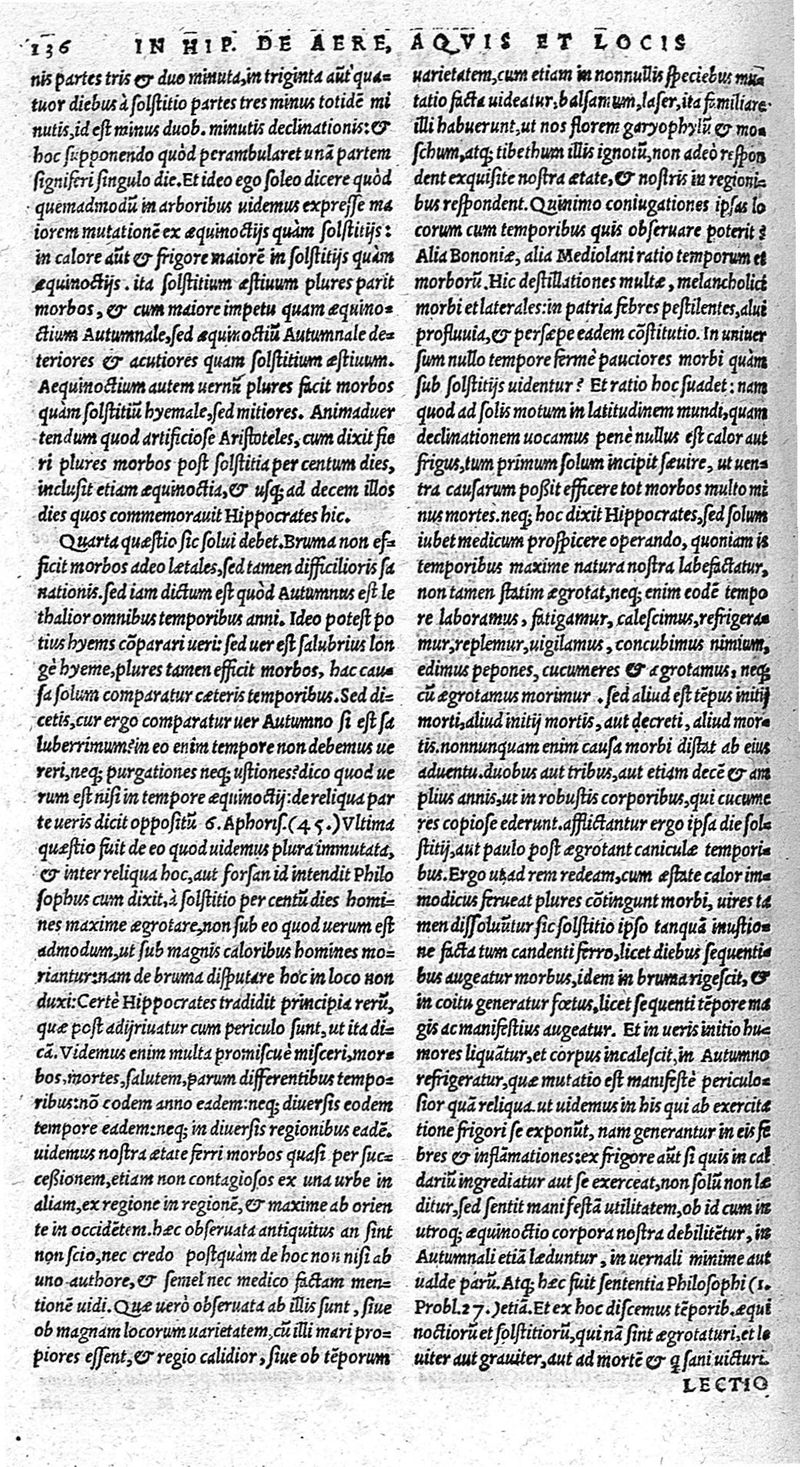 136 IN HIP. DE AERE, AQVIS ET LOCIS
nis partes tris & duo minuta, in triginta aūt qua=
tuor diebus à solstitio partes tres minus totidē mi
nutis, id est minus duob. minutis declinationis: &
hoc supponendo quòd perambularet unā partem
signiferi singulo die. Et ideo ego soleo dicere quòd
quemadmodū in arboribus uidemus expresse ma
iorem mutationē ex æquinoctijs quàm solstitijs:
in calore aūt & frigore maiorē in solstitijs quàm
æquinoctijs. ita solstitium æstiuum plures parit
morbos, & cum maiore impetu quam æquino=
ctium Autumnale, sed æquinoctiū Autumnale de=
teriores & acutiores quam solstitium æstiuum.
Aequinoctium autem uernū plures facit morbos
quàm solstitiū hyemale, sed mitiores. Animaduer
tendum quod artificiose Aristoteles, cum dixit fie
ri plures morbos post solstitia per centum dies,
inclusit etiam æquinoctia, & usq; ad decem illos
dies quos commemorauit Hippocrates hic.
Quarta quæstio sic solui debet. Bruma non ef=
ficit morbos adeo lætales, sed tamen difficilioris sa
nationis. sed iam dictum est quòd Autumnus est le
thalior omnibus temporibus anni. Ideo potest po
tius hyems cōparari ueri: sed uer est salubrius lon
gè hyeme, plures tamen efficit morbos, hac cau=
sa solum comparatur cæteris temporibus. Sed di=
cetis, cur ergo comparatur uer Autumno si est sa
luberrimum? in eo enim tempore non debemus ue
reri, neq; purgationes neq; ustiones? dico quod ue
rum est nisi in tempore æquinoctij: de reliqua par
te ueris dicit oppositū 6. Aphoris. (45.) Vltima
quæstio fuit de eo quod uidemus plura immutata,
& inter reliqua hoc, aut forsan id intendit Philo
sophus cum dixit, à solstitio per centū dies homi=
nes maxime ægrotare, non sub eo quod uerum est
admodum, ut sub magnis caloribus homines mo=
riantur: nam de bruma disputare hoc in loco non
duxi: Certè Hippocrates tradidit principia rerū,
quæ post adijciuatur cum periculo sunt, ut ita di=
cā. Videmus enim multa promiscuè misceri, mor=
bos, mortes, salutem, parum differentibus tempo=
ribus: nō eodem anno eadem: neq; diuersis eodem
tempore eadem: neq; in diuersis regionibus eadē.
uidemus nostra ætate ferri morbos quasi per suc=
cessionem, etiam non contagiosos ex una urbe in
aliam, ex regione in regionē, & maxime ab orien
te in occidētem. hæc obseruata antiquitus an sint
non scio, nec credo postquàm de hoc non nisi ab
uno authore, & semel nec medico factam men=
tionē uidi. Quæ uerò obseruata ab illis sunt, siue
ob magnam locorum uarietatem, cū illi mari pro=
piores essent, & regio calidior, siue ob tēporum
uarietatem, cum etiam in nonnullis speciebus mu=
tatio facta uideatur, balsamum, laser, ita familiare
illi habuerunt, ut nos florem garyophylū & mo=
schum, atq; tibethum illis ignotū, non adeò respon
dent exquisite nostra ætate, & nostris in regioni=
bus respondent. Quinimo coniugationes ipsas lo
corum cum temporibus quis obseruare poterit?
Alia Bononiæ, alia Mediolani ratio temporum et
morborū. Hic destillationes multæ, melancholici
morbi et laterales: in patria febres pestilentes, alui
profluuia, & persæpe eadem cōstitutio. In uniuer
sum nullo tempore fermè pauciores morbi quàm
sub solstitijs uidentur? Et ratio hoc suadet: nam
quod ad solis motum in latitudinem mundi, quam
declinationem uocamus penè nullus est calor aut
frigus, tum primum solum incipit sæuire, ut uen=
tra causarum possit efficere tot morbos multo mi
nus mortes. neq; hoc dixit Hippocrates, sed solum
iubet medicum prospicere operando, quoniam is
temporibus maxime natura nostra labefactatur,
non tamen statim ægrotat, neq; enim eodē tempo
re laboramus, fatigamur, calescimus, refrigera=
mur, replemur, uigilamus, concubimus nimium,
edimus pepones, cucumeres & ægrotamus, neq;
cū ægrotamus morimur. sed aliud est tēpus initij
morti, aliud initij mortis, aut decreti, aliud mor=
tis. nonnunquam enim causa morbi distat ab eius
aduentu. duobus aut tribus, aut etiam decē & am
plius annis, ut in robustis corporibus, qui cucume
res copiose ederunt. afflictantur ergo ipsa die sol=
stitij, aut paulo post ægrotant caniculæ tempori=
bus. Ergo ut ad rem redeam, cum æstate calor im=
modicus ferueat plures cōtingunt morbi, uires ta
men dissoluūtur sic solstitio ipso tanquā inustio=
ne facta tum candenti ferro, licet diebus sequenti=
bus augeatur morbus, idem in bruma rigescit, &
in coitu generatur fœtus, licet sequenti tēpore ma
gis ac manifestius augeatur. Et in ueris initio hu=
mores liquātur, et corpus incalescit, in Autumno
refrigeratur, quæ mutatio est manifestè periculo=
sior quā reliqua. ut uidemus in his qui ab exercita
tione frigori se exponūt, nam generantur in eis fe
bres & inflāmationes: ex frigore aūt si quis in cal
dariū ingrediatur aut se exerceat, non solū non læ
ditur, sed sentit manifestā utilitatem, ob id cum in
utroq; æquinoctio corpora nostra debilitētur, in
Autumnali etiā læduntur, in uernali minime aut
ualde parū. Atq; hæc fuit sententia Philosophi (1.
Probl. 27.) etiā. Et ex hoc discemus tēporib. æqui
noctiorū et solstitiorū, qui nā sint ægrotaturi, et le
uiter aut grauiter, aut ad mortē & q̄ sani uicturi.
LECTIO